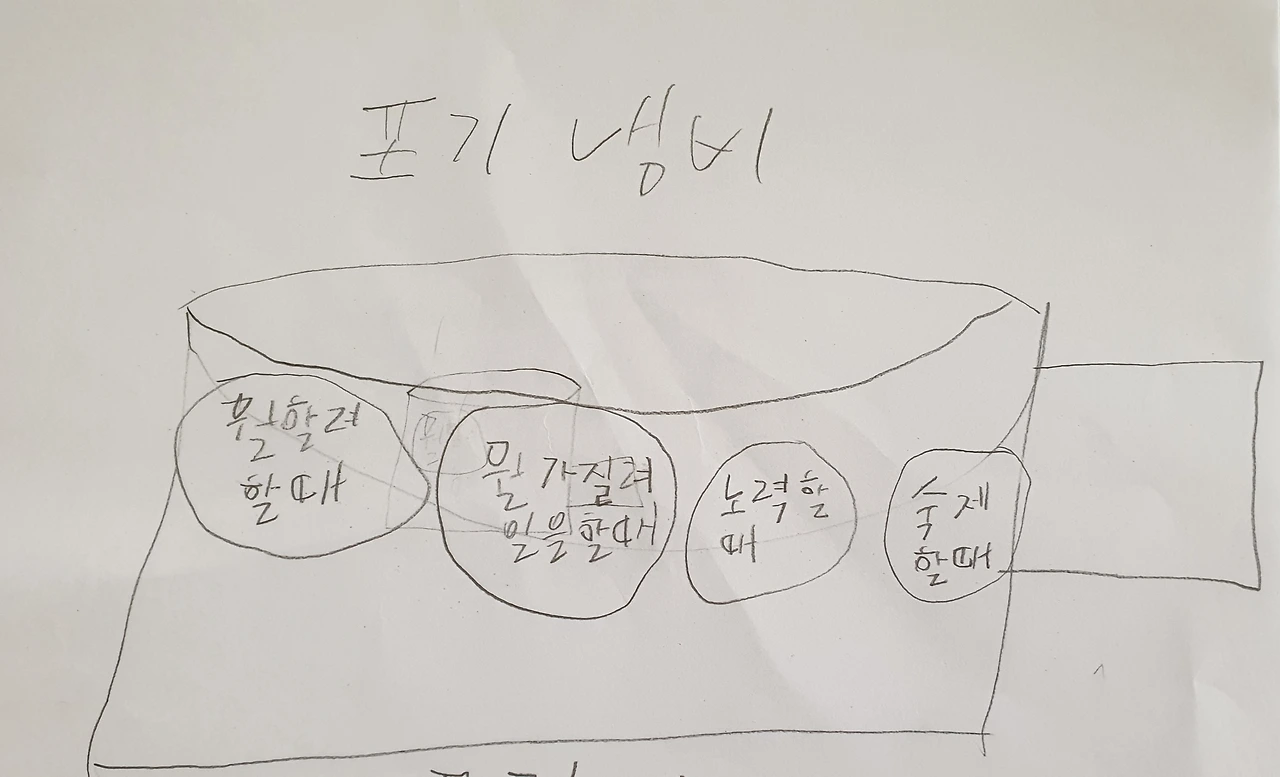 포기 냄비
뭘할려
할때
뭘 가질려
일을할때
노력할
때
숙제
할때